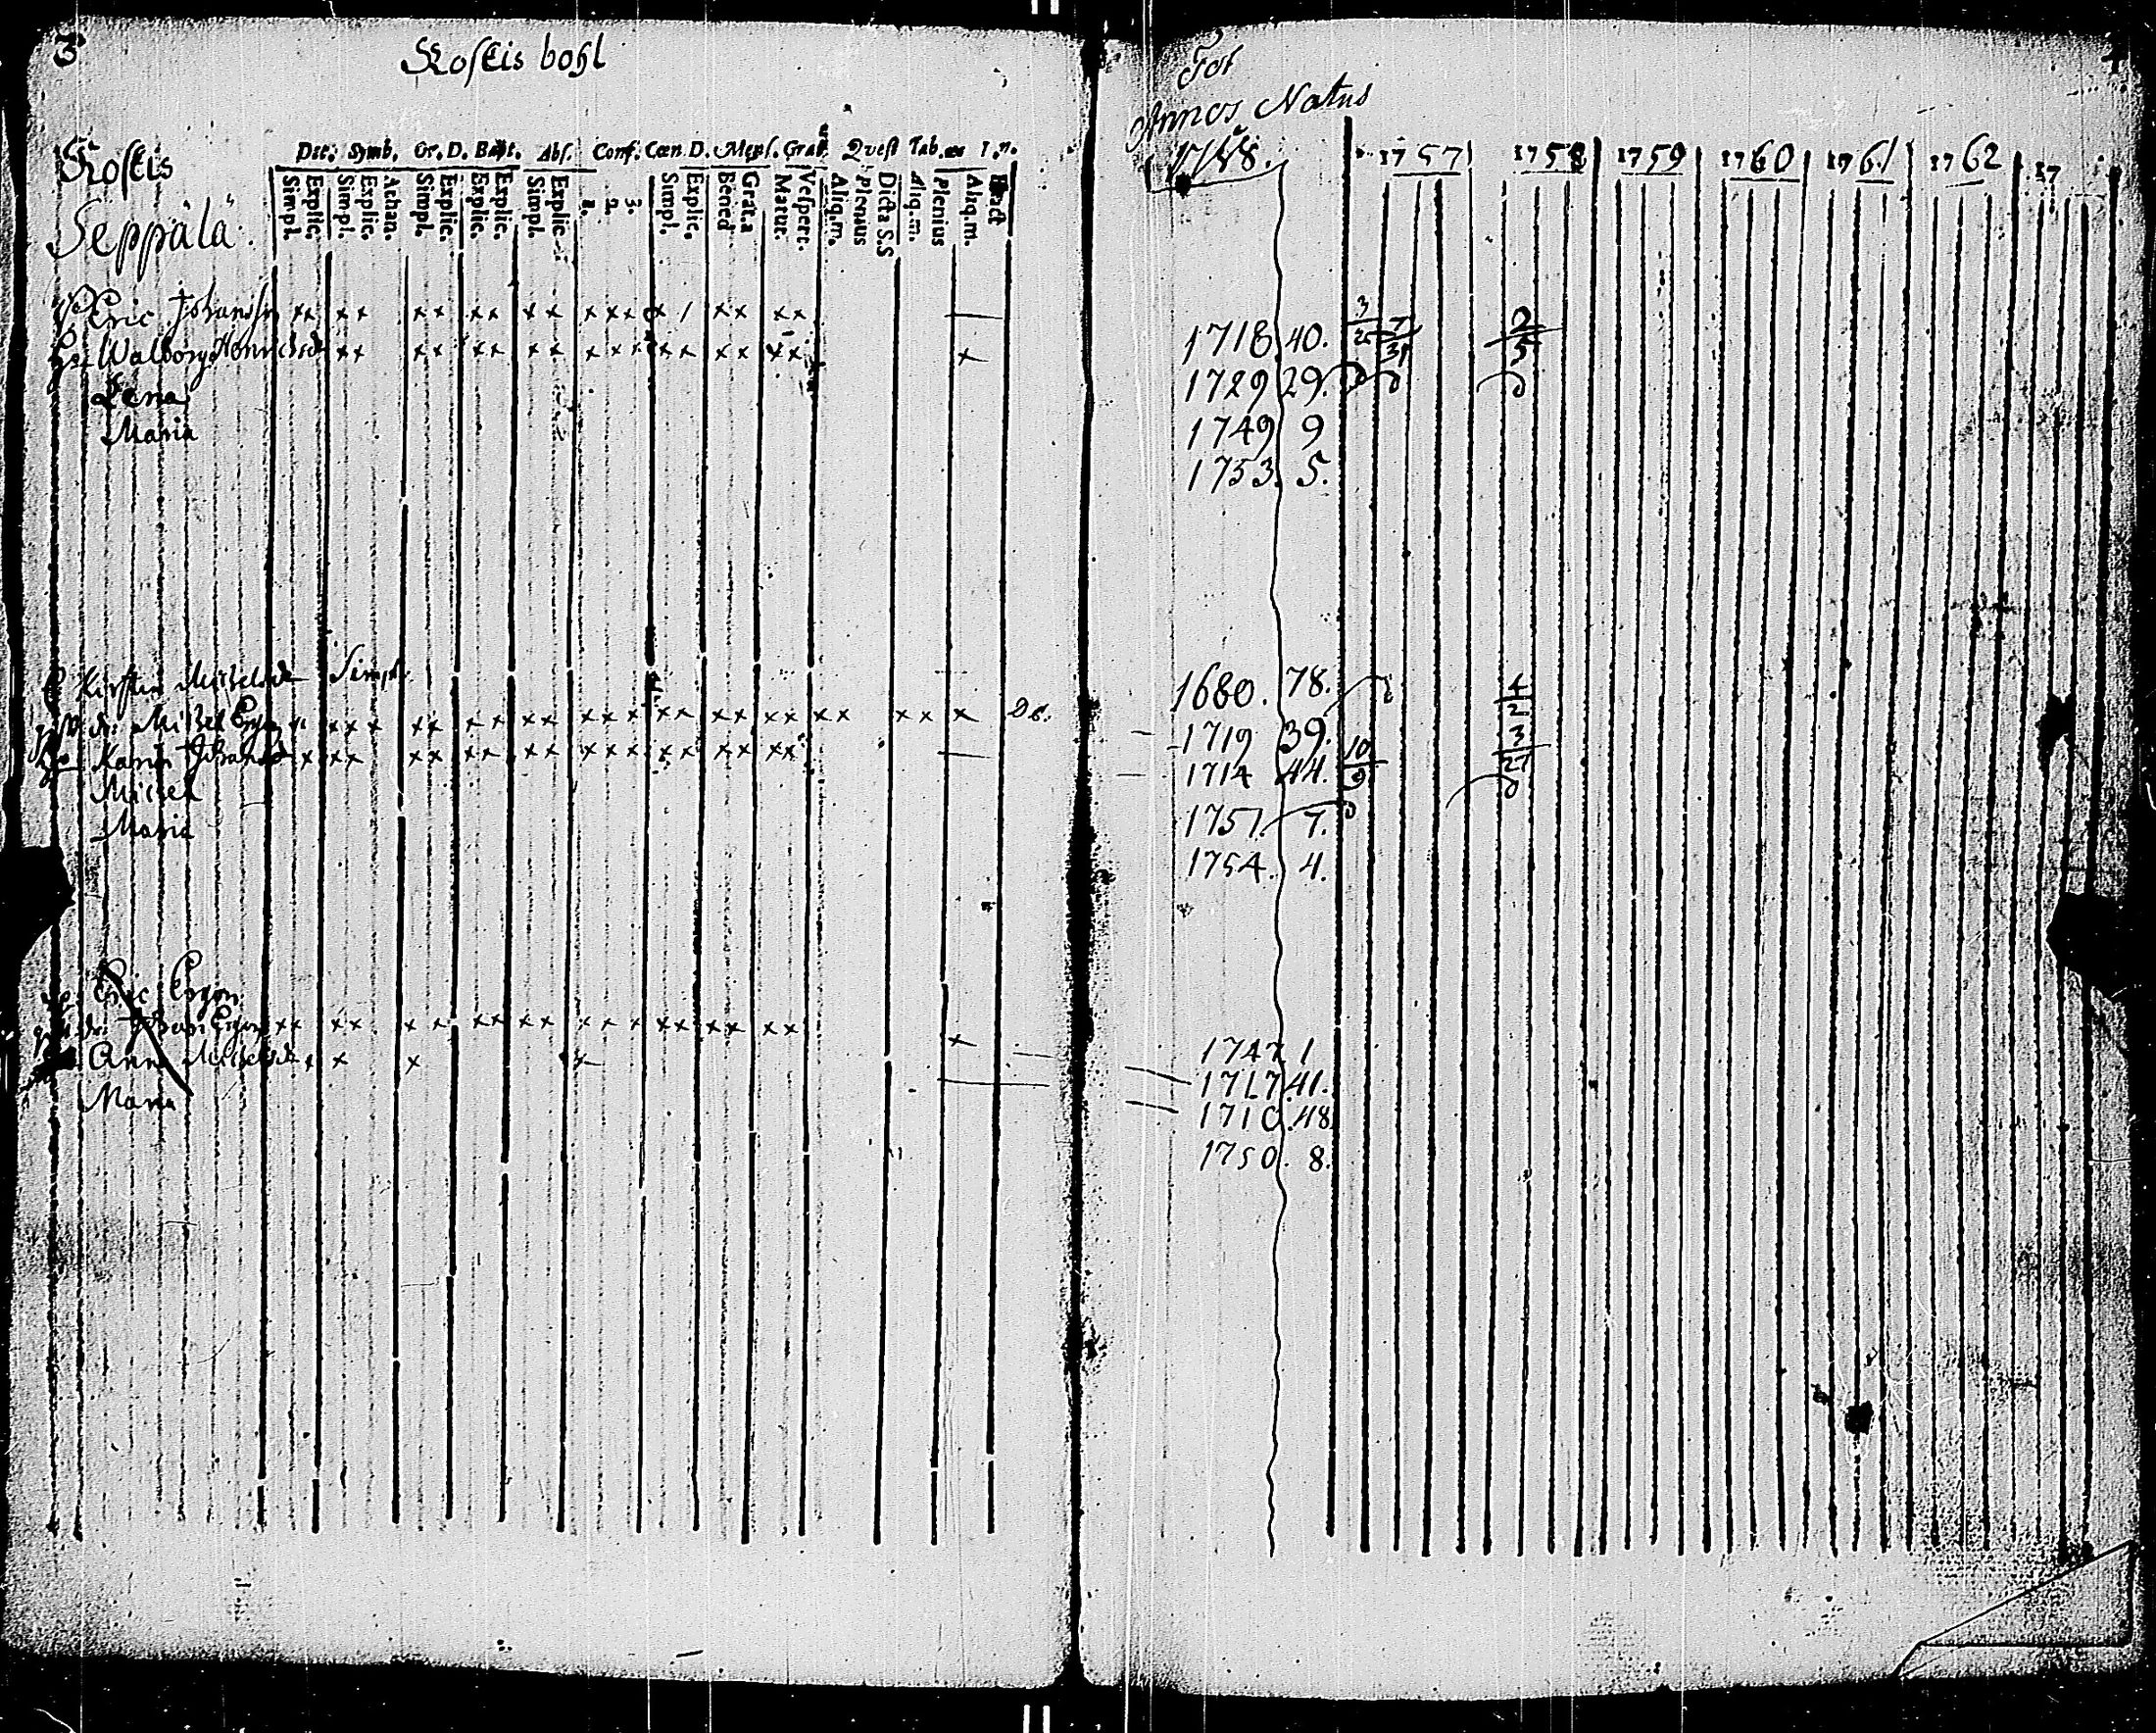 3
Koskis bohl
Koskis
Seppälä.
Dec. Symb. Or. D. Bapt. Abs. Conf. Cœn D. Mens. Grat. Quest Tab. œc I. n.
Simpl. Explic. Simpl. Explic. Athan. Simpl. Explic. Explic. Explic. Simpl. Explic. 1. 2. 3. Simpl. Explic. Bened Grat.a Matut. Vespert. Aliq.m. Plenius Dicta S.S Aliq.m. Plenius Aliq.m. Exact
Eric Johansson xx xx xx xx xx xxx x / xx xx
Walborg Henrichsd xx xx xx xx xxx xx xx xx x
Lena
Maria
Kirstin Michelsd Simpl.
dr. Michel Ersson x xxx xx xx xx xxx xx xx xx xx xx x
Karin Johansd x xx xx xx xx xxx xx xx xx
Michel
Maria
Eric Ersson
dr. Johan Ersson xx xx xx xx xx xxx xx xx xx x
Anna Michelsd x x x x
Maria
Tot
Annos Natus
1758. 1757 1758 1759 1760 1761 1762 17
1718 40. 3/25 7/31 2/5
1729 29.
1749 9
1753. 5.
1680. 78. 4/2
1719 39. 3/27
1714 44. 10/9
1751. 7.
1754. 4.
1747 1
1717 41.
1710. 48
1750. 8.